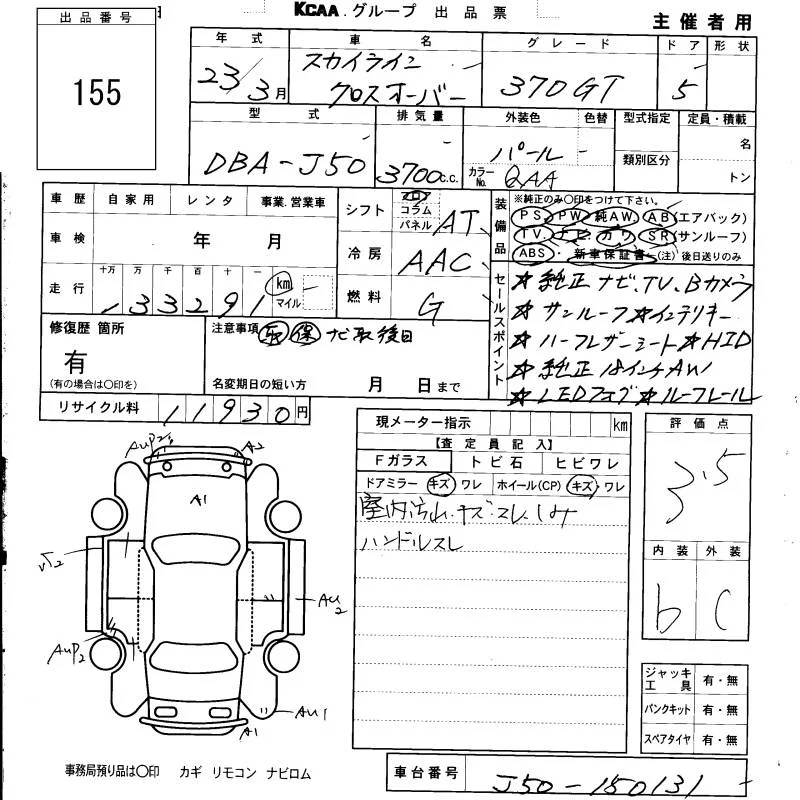 KCAA グループ 出品票
主催者用
出品番号
155
年式
23/3月
車名
スカイライン
クロスオーバー
グレード
370GT
ドア
5
形状
型式
DBA-J50
排気量
3700c.c.
外装色
パール
色替
カラーNo.
QAA
型式指定
類別区分
定員・積載
名
トン
車歴
自家用
レンタ
事業.営業車
車検
年 月
走行
十万 万 千 百 十 一
133291
km
マイル
シフト
コラム
パネル
AT
冷房
AAC
燃料
G
装備品
※純正のみ〇印をつけて下さい。
PS PW 純AW AB(エアバック)
TV. ナビ カワ SR(サンルーフ)
ABS・新車保証書(注)後日送りのみ
セールスポイント
★純正ナビ、TV、Bカメラ
★サンルーフ★インテリキー
★ハーフレザーシート★HID
★純正18インチAW
★LEDフォグ★ルーフレール
修復歴 箇所
有
(有の場合は〇印を)
注意事項
取 保 ナビ取後日
名変期日の短い方 月 日まで
リサイクル料
11930円
現メーター指示 km
【査定員記入】
Fガラス トビ石 ヒビワレ
ドアミラー キズ ワレ ホイール(CP) キズ ワレ
室内汚れ.キズ.スレ.しみ
ハンドルスレ
評価点
3.5
内装 外装
b C
ジャッキ工具 有・無
パンクキット 有・無
スペアタイヤ 有・無
AUP2
A2
A1
√2
AU2
AUP2
AU1
A1
事務局預り品は〇印 カギ リモコン ナビロム
車台番号
J50-150131